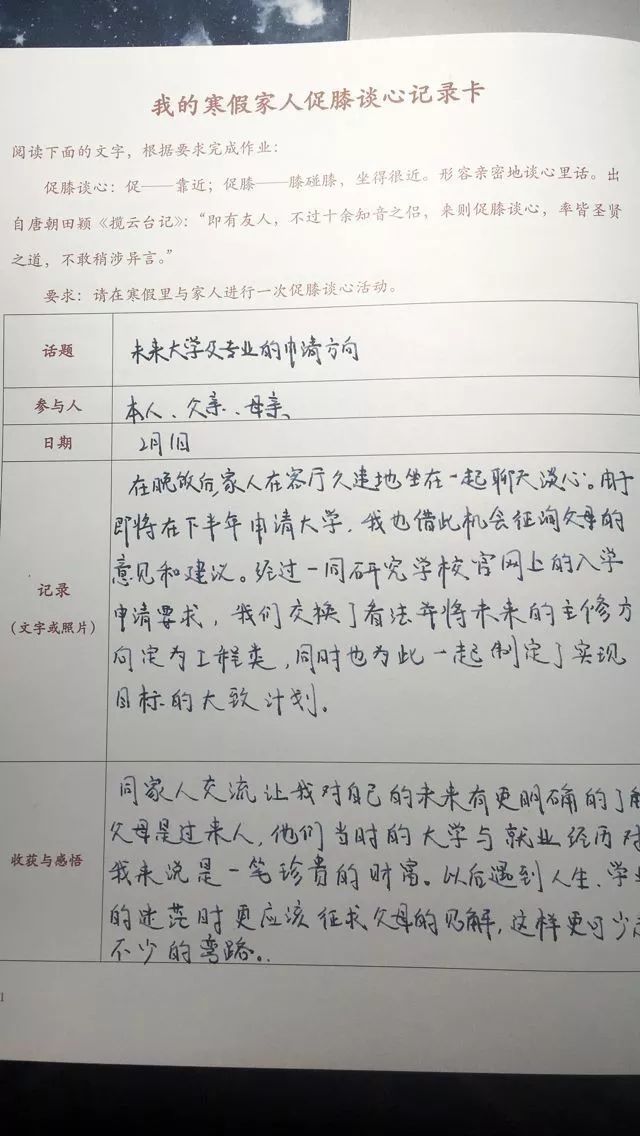 我的寒假家人促膝谈心记录卡
阅读下面的文字，根据要求完成作业：
促膝谈心：促——靠近；促膝——膝碰膝，坐得很近。形容亲密地谈心里话。出
自唐朝田颖《揽云台记》：“即有友人，不过十余知音之侣，来则促膝谈心，率皆圣贤
之道，不敢稍涉异言。”
要求：请在寒假里与家人进行一次促膝谈心活动。
话题
未来大学及专业的申请方向
参与人
本人、父亲、母亲
日期
2月1日
记录
（文字或照片）
在晚饭后，家人在客厅久违地坐在一起聊天谈心。由于
即将在下半年申请大学，我也借此机会征询父母的
意见和建议。经过一同研究学校官网上的入学
申请要求，我们交换了看法并将未来的主修方
向定为工程类，同时也为此一起制定了实现
目标的大致计划。
收获与感悟
同家人交流让我对自己的未来有更明确的了解
父母是过来人，他们当时的大学与就业经历对
我来说是一笔珍贵的财富。以后遇到人生、学业
的迷茫时更应该征求父母的见解，这样更可少走
不少的弯路。
1